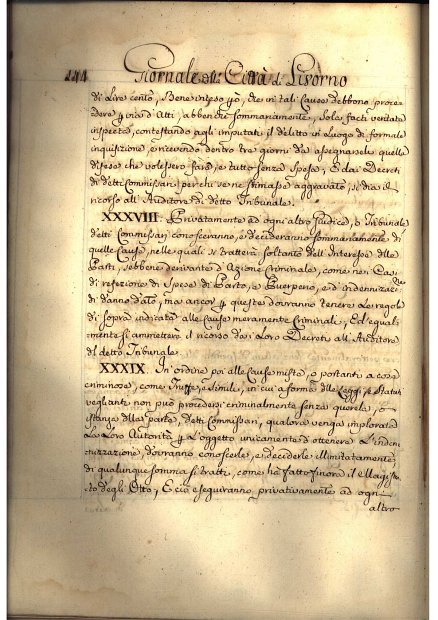 144 Giornale della Città di Livorno
di Lire cento, Bene inteso però, che in tali Cause debbono proce=
dere per via d'Atti, abbenchè sommariamente, sola facti veritate
inspecta, contestando agli imputati il delitto in luogo di formale
inquisizione, e ricevendo dentro tre giorni da assegnarsele quelle
difese che volessero fare, e tutto senza spesa, E dai Decreti
di detti Commissari per chi se ne stimasse aggravato, si dia il
ricorso all'Auditore di detto Tribunale.
XXXVIII. Privatamente ad ogni altro Giudice, o Tribunale
detti Commissari conosceranno, e decideranno sommariamente di
quelle Cause, nelle quali si tratterà soltanto dell'Interesse delle
Parti, sebbene derivante d'Azione Criminale, come non Da=
di refezione di Spese di Parto, e Puerperio, e d'indennizazi=
di danno dato, ma ancor per queste dovranno tenere le regole
di sopra indicate alle Cause meramente Criminali, Ed egual=
mente si ammetterà il ricorso da i Loro Decreti all'Auditore
del detto Tribunale.
XXXIX. In ordine poi alle Cause miste, o portanti a cosa
criminosa, come Truffe, e simili, in cui a forma delle Leggi, e Statuti
veglianti non può procedersi criminalmente senza querela, o
istanza della parte, detti Commissari, qualora venga implorata
La Loro Autorità per L'oggetto unicamente d'ottenere L'inden=
nizzazione, dovranno conoscerle, e deciderle illimitatamente,
di qualunque somma si tratti, come ha fatto finora il Magistr=
to degli Otto, E ciò eseguiranno privativamente ad ogni
altro